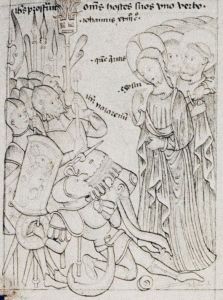 prostrauit oms hostes suos uno verbo
Johannis xviij c°
que queritis
ego sum
ihm nazarenu